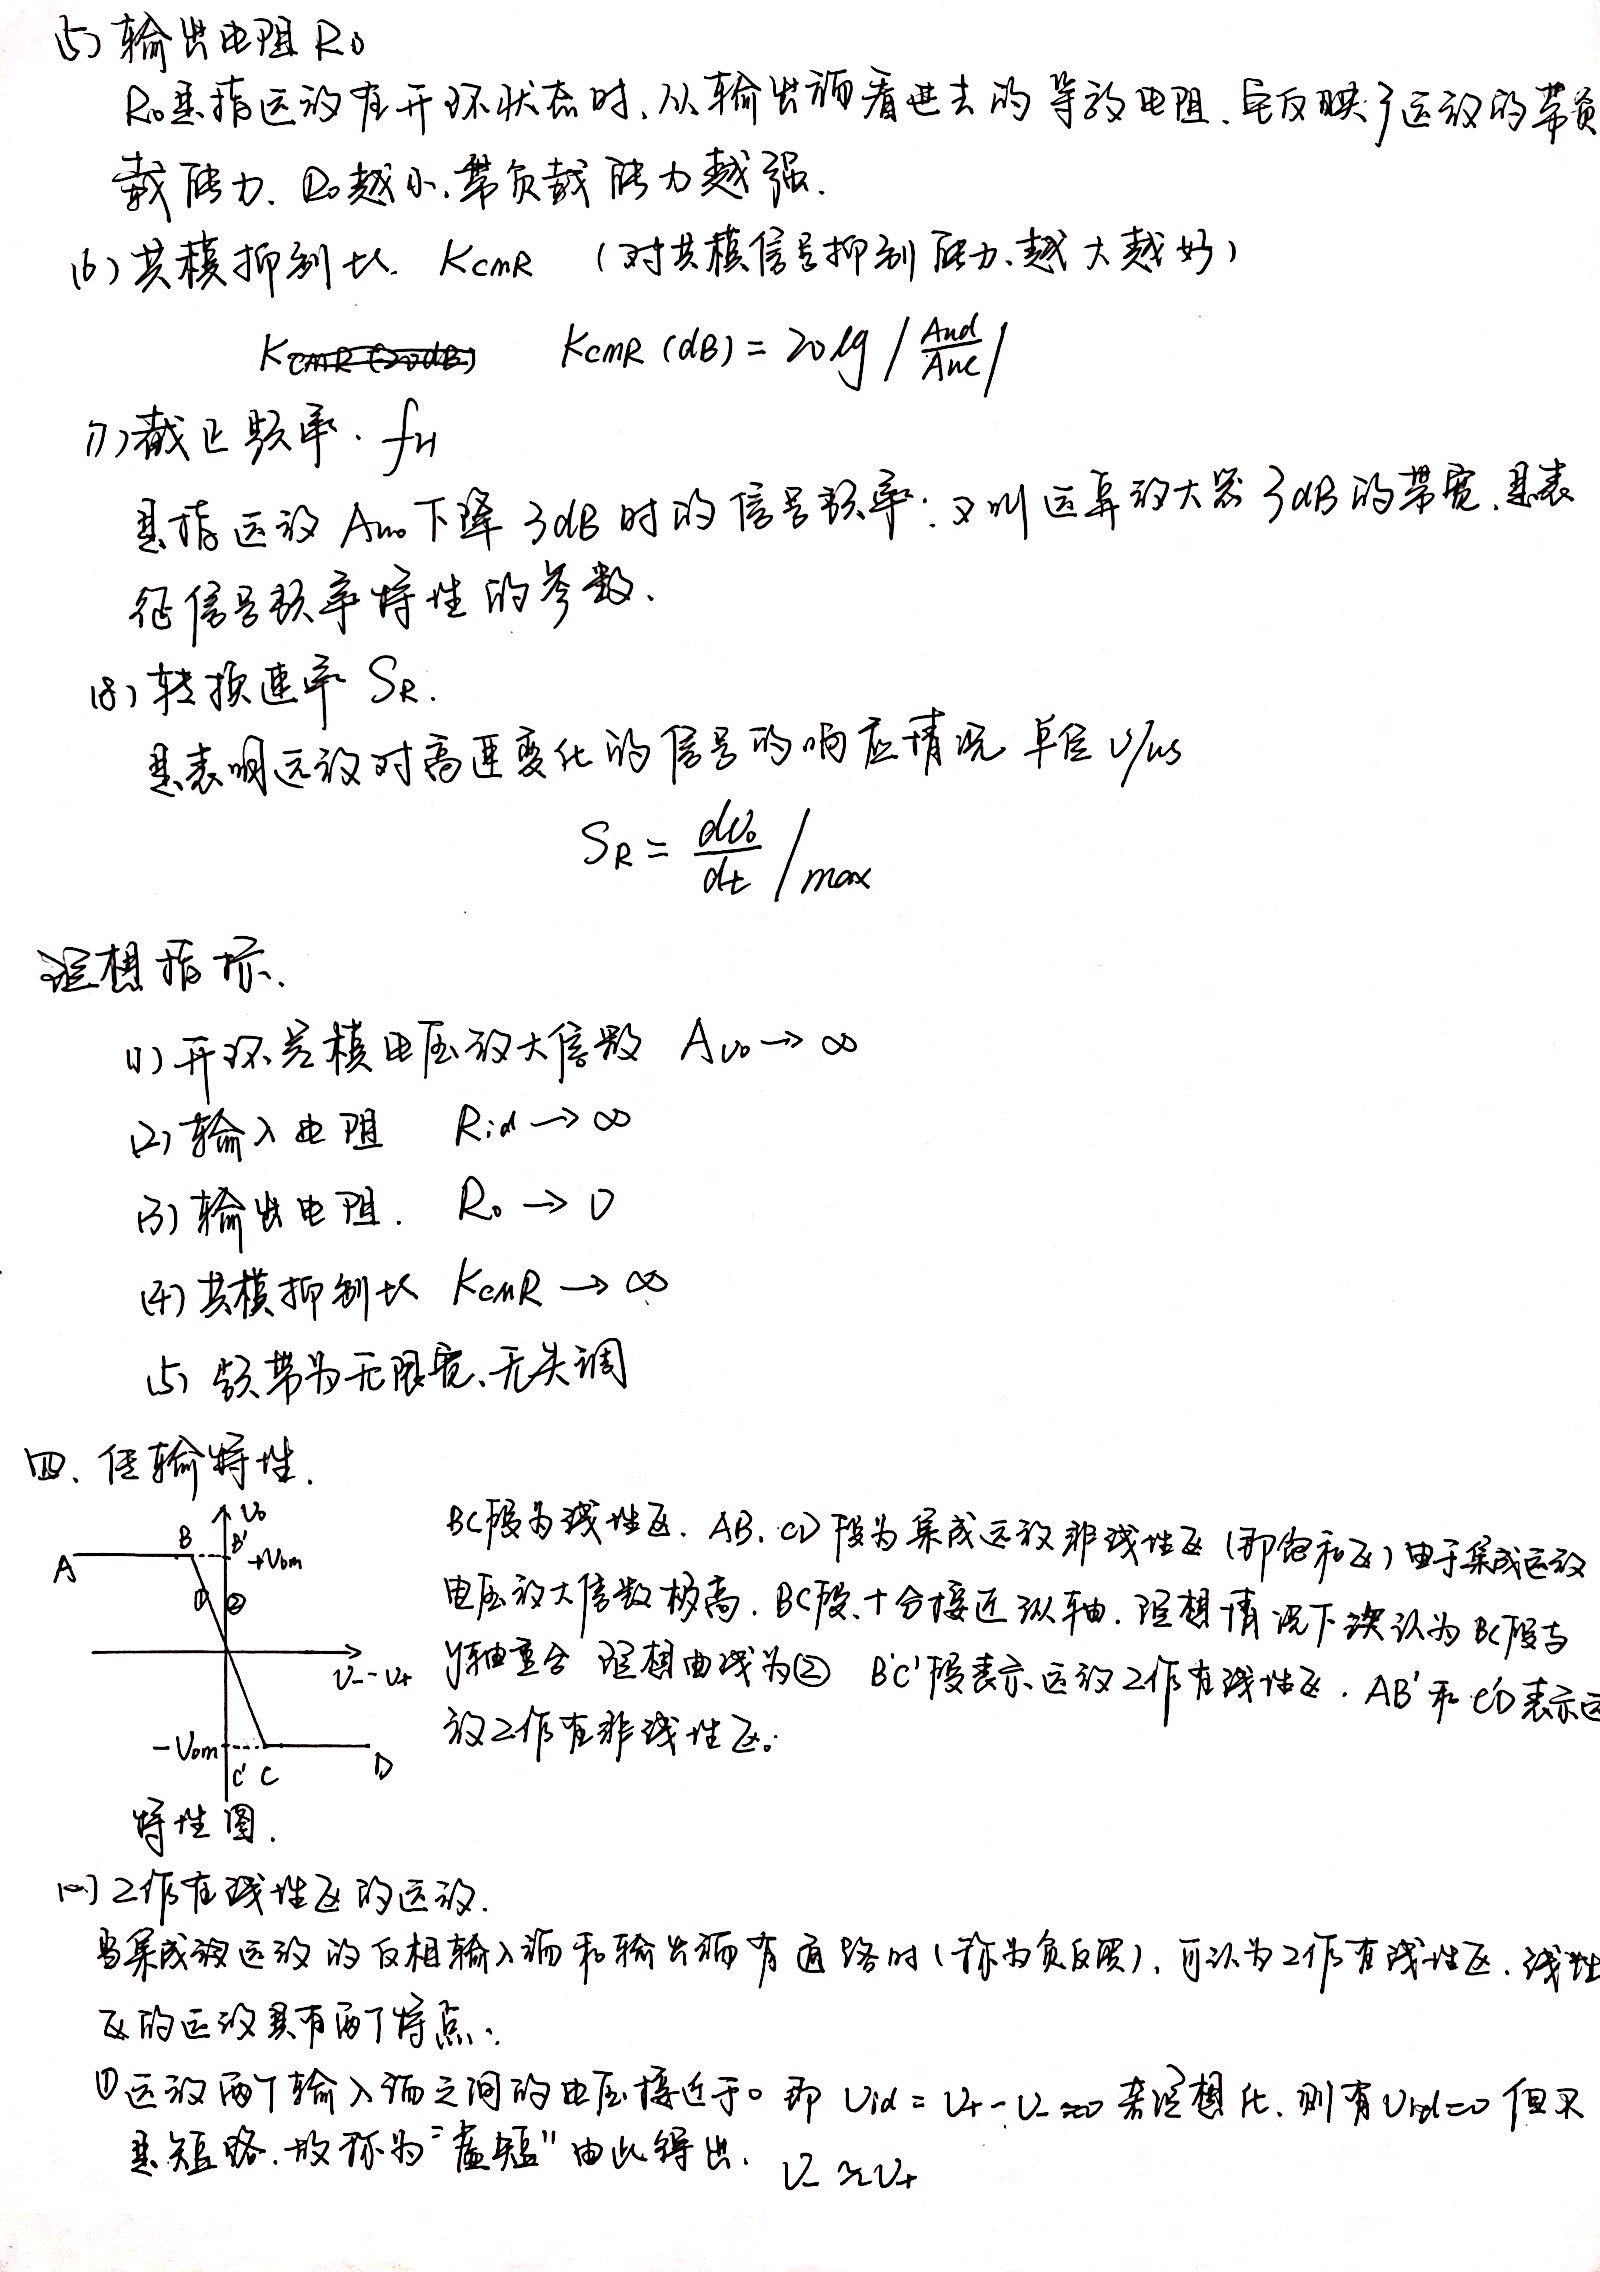 (5) 输出电阻 Ro
Ro是指运放在开环状态时、从输出端看进去的等效电阻.它反映了运放的带负
载能力. Ro越小、带负载能力越强.
(6) 共模抑制比. KCMR (对共模信号抑制能力、越大越好)
KCMR(dB) = 20lg/Aud/Auc/
(7) 截止频率. fH
是指运放 Auo 下降 3dB 时的信号频率; 又叫运算放大器 3dB 的带宽.是表
征信号频率特性的参数、
(8) 转换速率 SR.
是表明运放对高速变化的信号的响应情况 单位 V/us
SR = dUo/dt /max
理想指标、
(1) 开环差模电压放大倍数 Auo → ∞
(2) 输入电阻 Rid → ∞
(3) 输出电阻. Ro → 0
(4) 共模抑制比 KCMR → ∞
(5) 频带为无限宽、无失调
四、传输特性.
Uo
B B'
A +Uom
① ②
U- - U+
-Uom
C' C D
特性图.
BC段为线性区. AB、CD段为集成运放非线性区(即饱和区)由于集成运放
电压放大倍数极高. BC段、十分接近纵轴. 理想情况下认为BC段与
y轴重合 理想曲线为② B'C'段表示运放工作在线性区. AB'和C'D表示运
放工作在非线性区。
(一) 工作在线性区的运放.
当集成运放的反相输入端和输出端有通路时(称为负反馈), 可认为工作在线性区. 线性
区的运放具有两个特点:
①运放两个输入端之间的电压接近于0 即 Uid = U+ - U- ≈0 若理想化、则有Uid=0 但不
是短路、故称为"虚短" 由此得出. U- ≈ U+